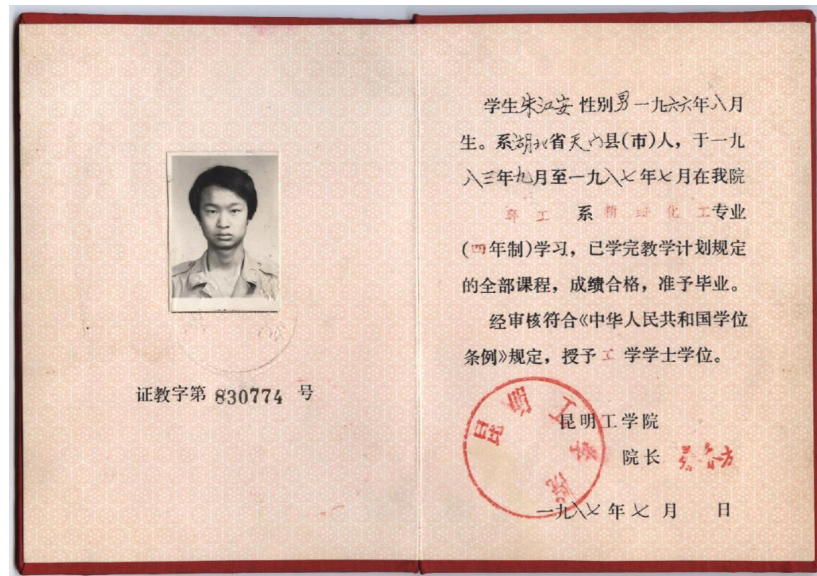 证教字第 830774 号
学生朱江安 性别男一九六六年八月
生。系湖北省天门县(市)人，于一九
八三年九月至一九八七年七月在我院
环工 系 精细化工专业
(四年制)学习，已学完教学计划规定
的全部课程，成绩合格，准予毕业。
经审核符合《中华人民共和国学位
条例》规定，授予 工 学学士学位。
昆明工学院
昆明工学院
院长
一九八七年七月 日